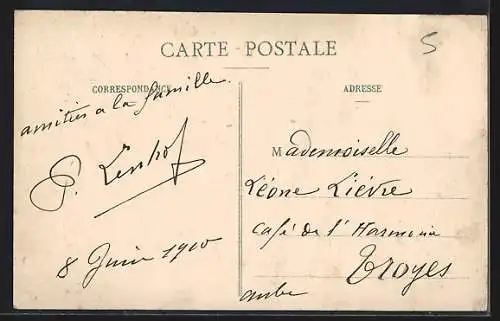 CARTE POSTALE
5
CORRESPONDANCE
ADRESSE
amitiés a la famille.
P. Lenhof
8 Juin 1910
Mademoiselle
Léone Lièvre
Café de l'Harmonie
Troyes
aube